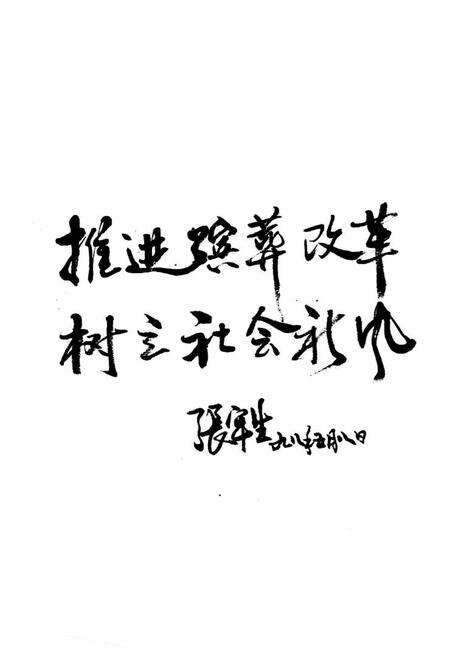 推进殡葬改革
树立社会新风
張宝生九八年五月八日